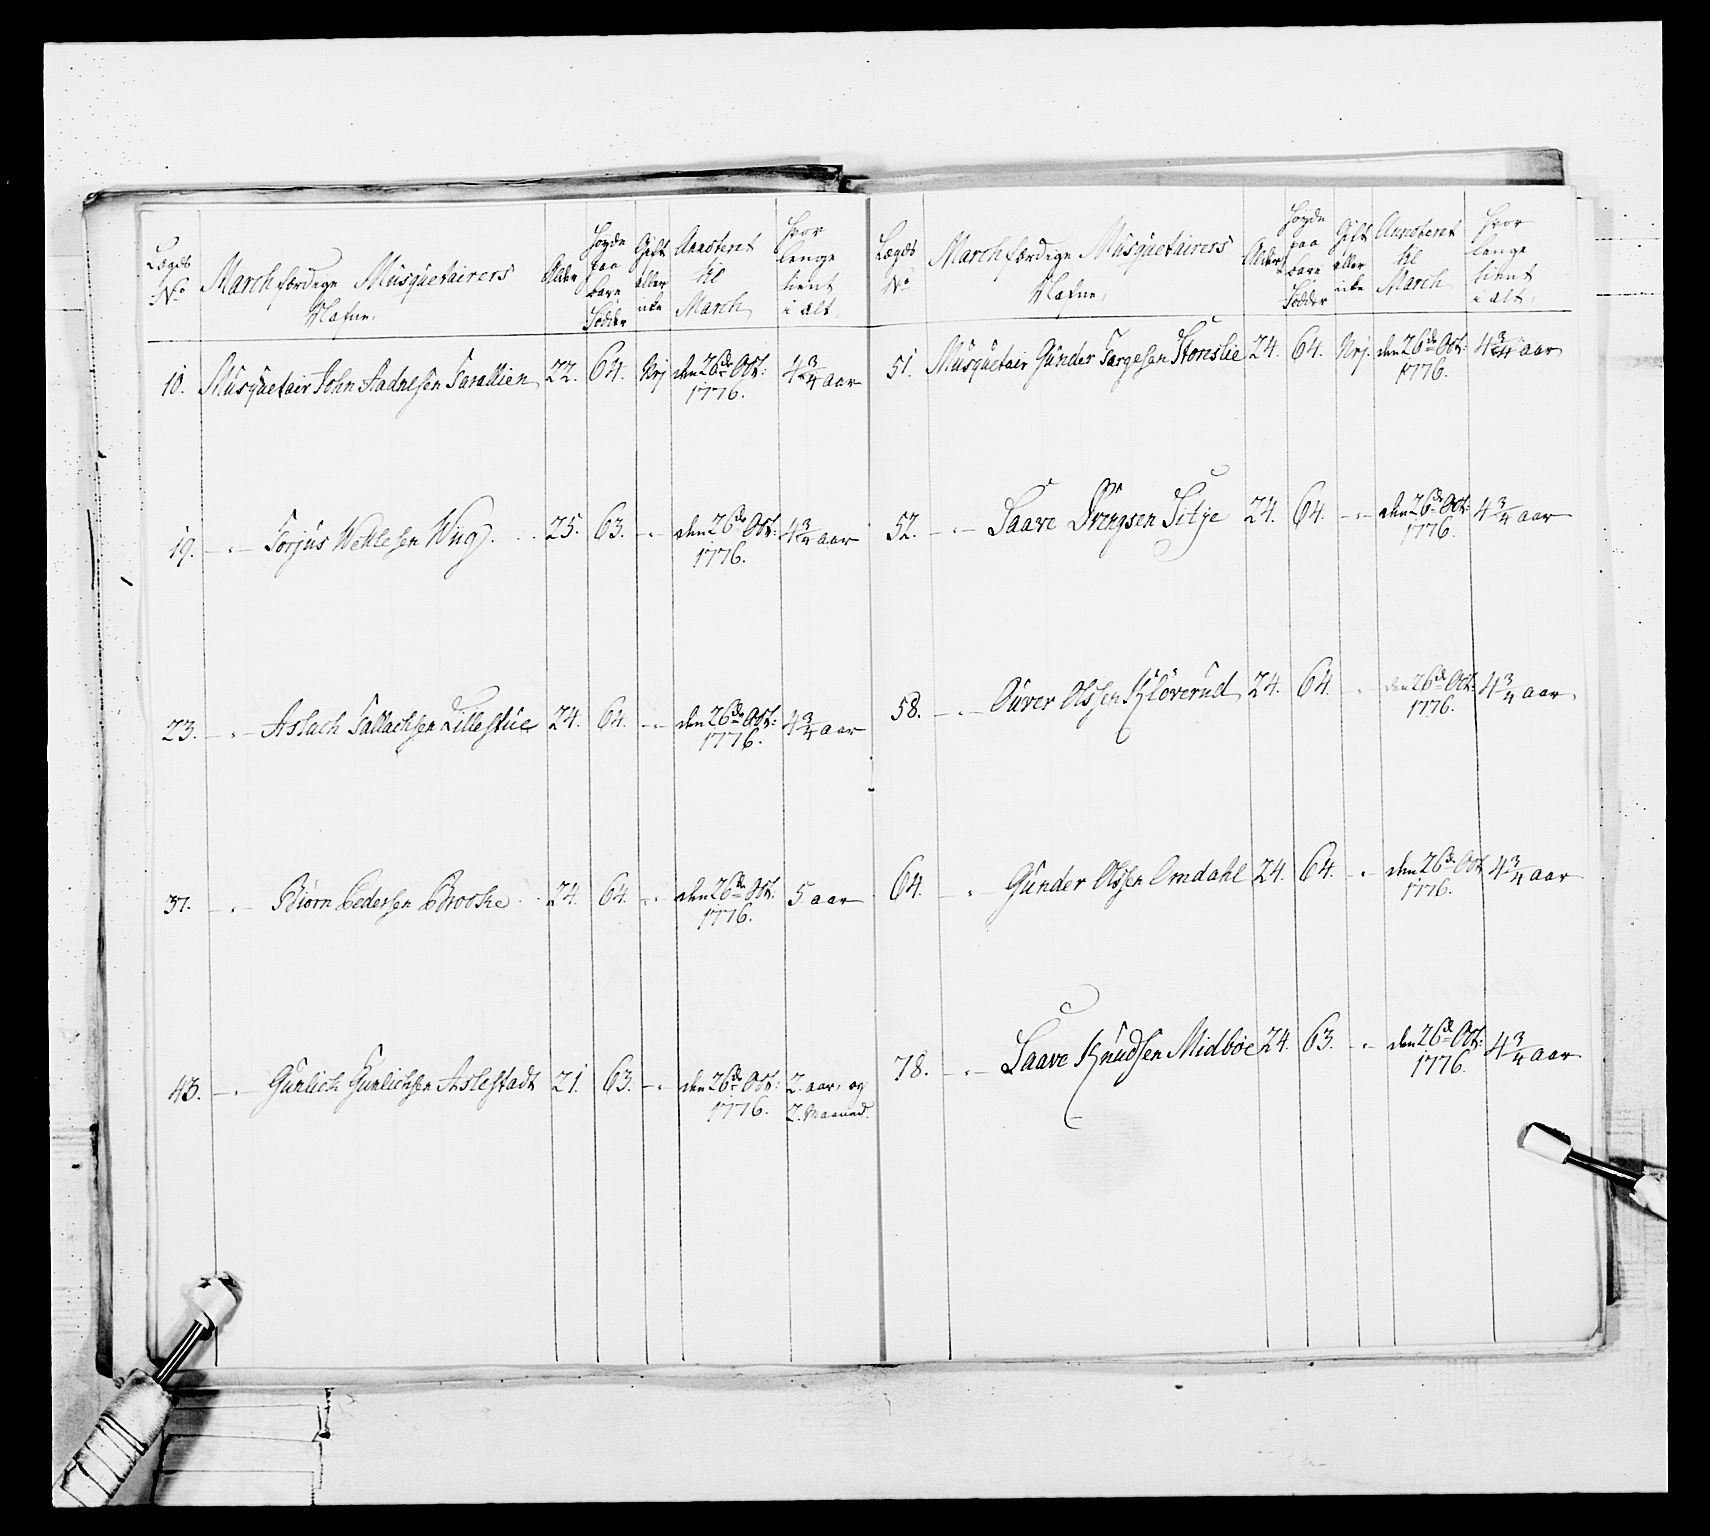 Lægds No
Marchfærdige Musquetairers Nafne.
Alder
Høyde paa bare Fødder
Gift eller icke
Annoteret til March
Hvor lenge tient i alt.
10. Musquetair John Aadnesen Tarallien 22. 64. Nej den 26de Oct: 1776. 4 3/4 aar
19. — " — Torjus Wetlesen Wiig. 25. 63. — " den 26de Oct: 1776. 4 3/4 aar
23. — " — Aslach Tallachsen Lillestue 24. 64. — " — den 26de Oct: 1776. 4 3/4 aar
37. — " — Biørn Pedersen Brooke. 24. 64. — " — den 26de Oct. 1776. 5 aar
43. — " — Gunlich Gunlichsen Aslestadt 21. 63. — " den 26de Oct: 1776. 2. aar. og 2. Maaned.
Lægds No
Marchfærdige Musquetairers Nafne.
Alder
Høyde paa bare Fødder
Gift eller icke
Annoteret til March
Hvor lenge tient i alt.
51. Musquetair Gunder Targesen Storeslie 24. 64. Nej. den 26de Oct: 1776. 4 3/4 aar
52. — " — Saave Drengsen Sitje 24. 64. — " — den 26de Oct: 1776. 4 3/4 aar
58. — " — Ouver Olssen Kløverud 24. 64. — " den 26de Oct: 1776. 4 3/4 aar.
64. — " Gunder Olssen Omdahl 24. 64. — " den 26de Oct 1776. 4 3/4 aar
78. — " — Saave Knudsen Midbøe 24. 63. — " den 26de Oct: 1776. 4 3/4 aar